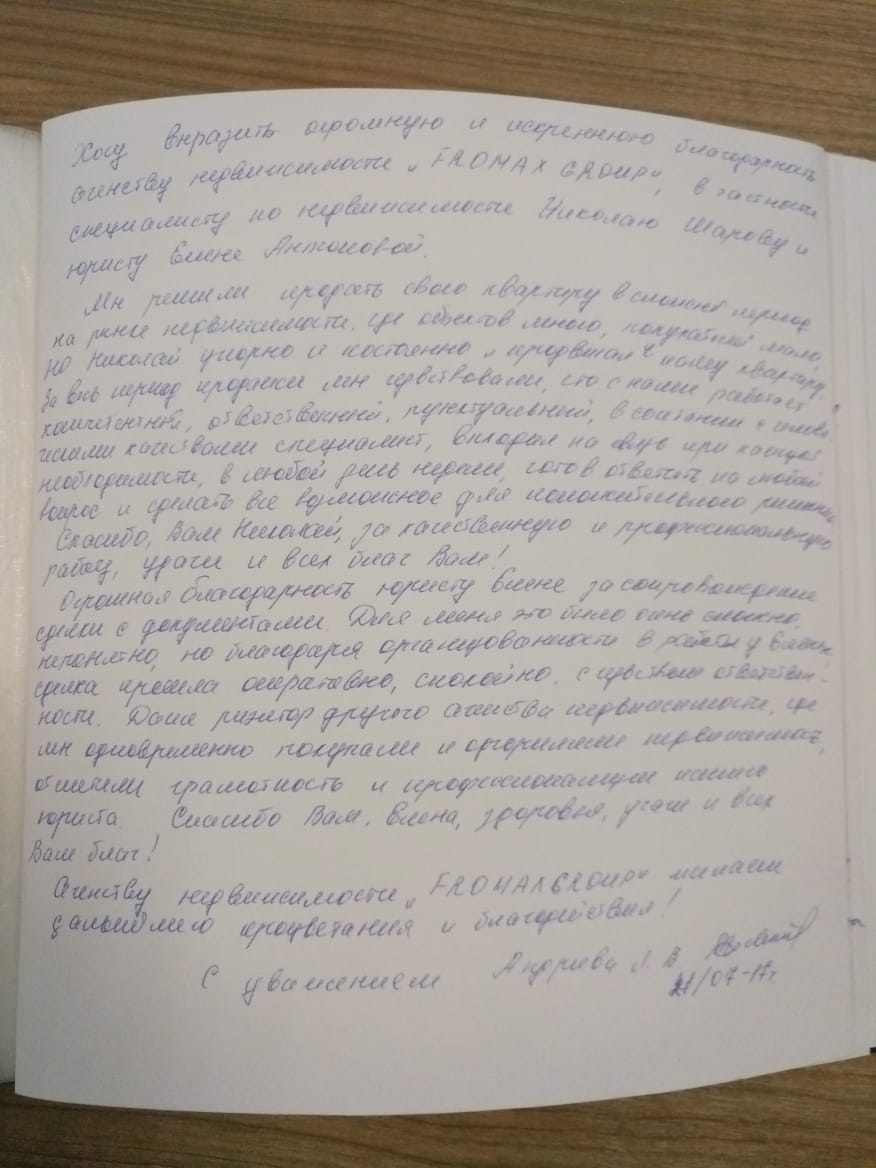 Хочу выразить огромную и искреннюю благодарность
агенству недвижимости „FROMAX GROUP", в частности
специалисту по недвижимости Николаю Шарову и
юристу Елене Антоновой.
Мы решили продать свою квартиру в сложный период
на рынке недвижимости, где объектов много, покупателей мало,
но Николай упорно и постоянно „продвигал" нашу квартиру.
За весь период продажи мы чувствовали, что с нами работает
компетентный, ответственный, пунктуальный, в сочетании с челове-
ческими качествами специалист, выходил на связь при каждой
необходимости, в любой день недели, готов ответить на любой
вопрос и сделать все возможное для положительного решения.
Спасибо, Вам Николай, за качественную и профессиональную
работу, удачи и всех благ Вам!
Огромная благодарность юристу Елене за сопровождение
сделки с документами. Для меня это было очень сложно,
непонятно, но благодаря организованности в работе у Елены
сделка прошла оперативно, спокойно, с чувством ответствен-
ности. Даже риэлтор другого агенства недвижимости, где
мы одновременно покупали и оформляли недвижимость,
отметили грамотность и профессионализм нашего
юриста. Спасибо Вам, Елена, здоровья, удачи и всех
Вам благ!
Агенству недвижимости „FROMAXGROUP" желаем
дальнейшего процветания и благоденствия!
С уважением Андреева Л. В.
21/07-17г.